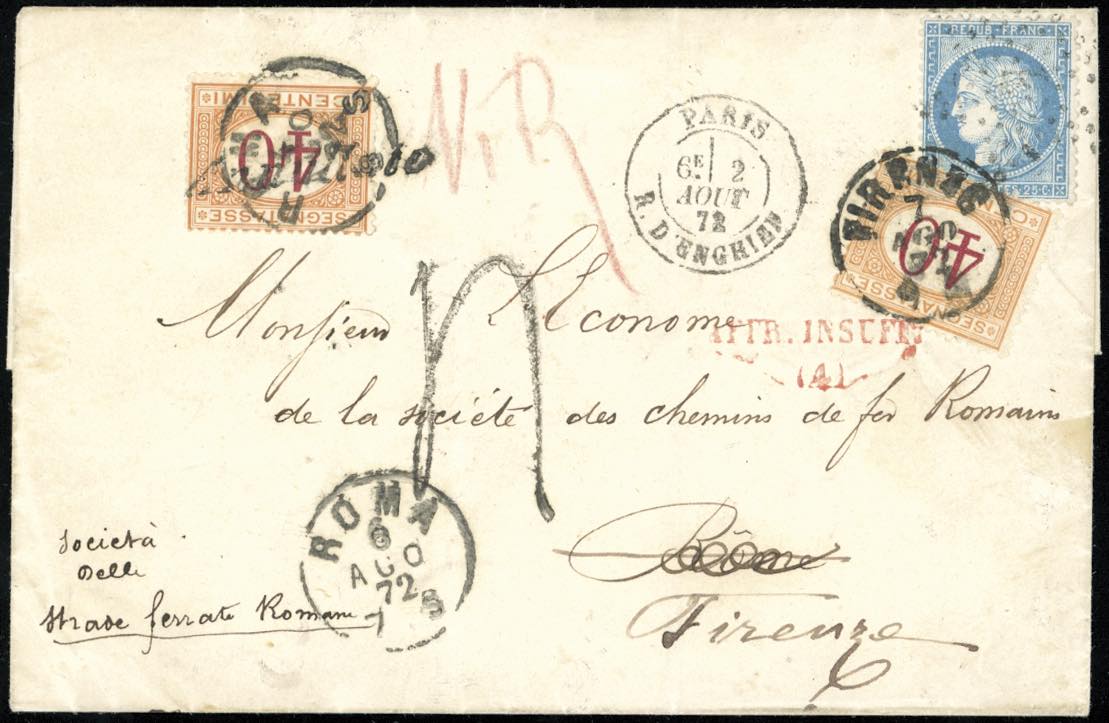 REPUB. FRANC.
25 C.
PARIS
6E 2
AOUT
72
R. D'ENGHIEN
CENTESIMI
40
Annullato
SEGNATASSE
40
SEGNATASSE
FIRENZE
7
AGO
AFFR. INSUFF.
(4)
Monsieur L'Econome
de la société des chemins de fer Romains
Rôme
Firenze
ROMA
6
AGO
72
7 S
Società
Delle
Strade ferrate Romane